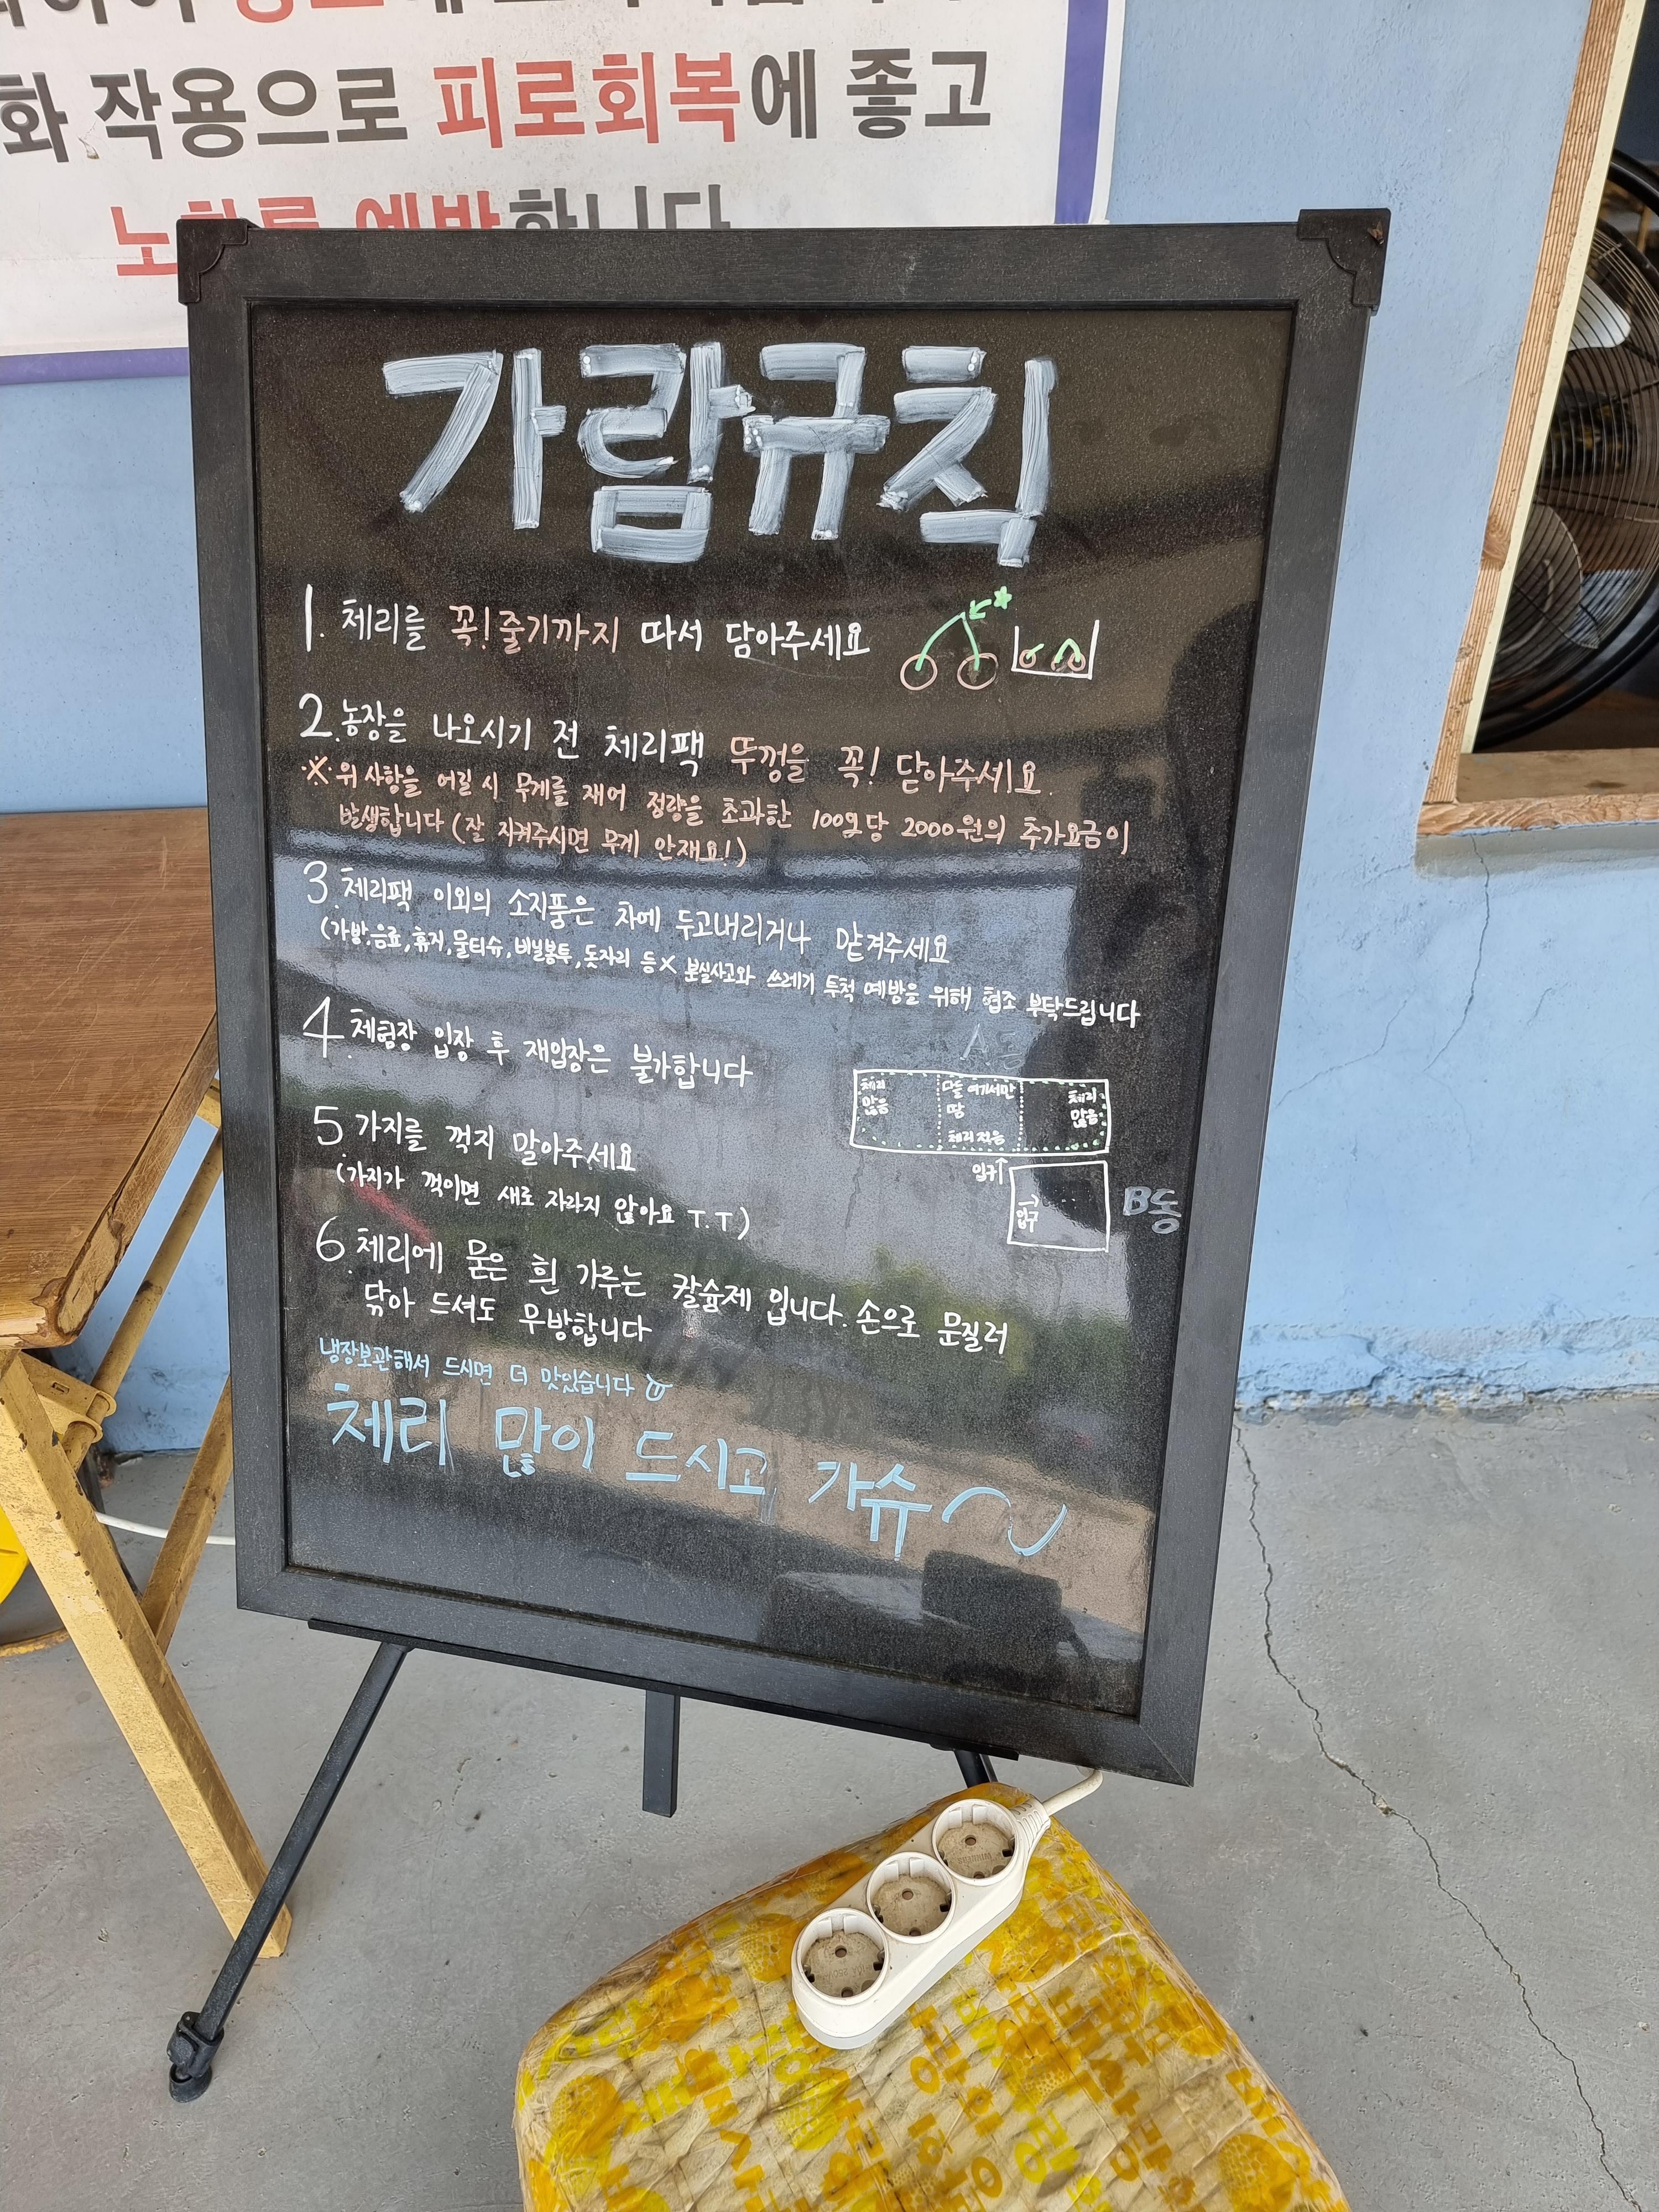 화 작용으로 피로회복에 좋고
노화를 예방합니다
가람규칙
1. 체리를 꼭! 줄기까지 따서 담아주세요
2. 농장을 나오시기 전 체리팩 뚜껑을 꼭! 닫아주세요.
※ 위 사항을 어길 시 무게를 재어 정량을 초과한 100g당 2000원의 추가요금이
발생합니다 (잘 지켜주시면 무게 안재요!)
3. 체리팩 이외의 소지품은 차에 두고내리거나 맡겨주세요
(가방,음료,휴지,물티슈,비닐봉투,돗자리 등X 분실사고와 쓰레기 투척 예방을 위해 협조 부탁드립니다
4. 체험장 입장 후 재입장은 불가합니다
A동
체리
많음
다들 여기서만
땀
체리 적음
체리
많음
입구↑
→
입구
B동
5. 가지를 꺽지 말아주세요
(가지가 꺽이면 새로 자라지 않아요 T.T)
6. 체리에 묻은 흰 가루는 칼슘제 입니다. 손으로 문질러
닦아 드셔도 무방합니다
냉장보관해서 드시면 더 맛있습니다
체리 많이 드시고 가슈~